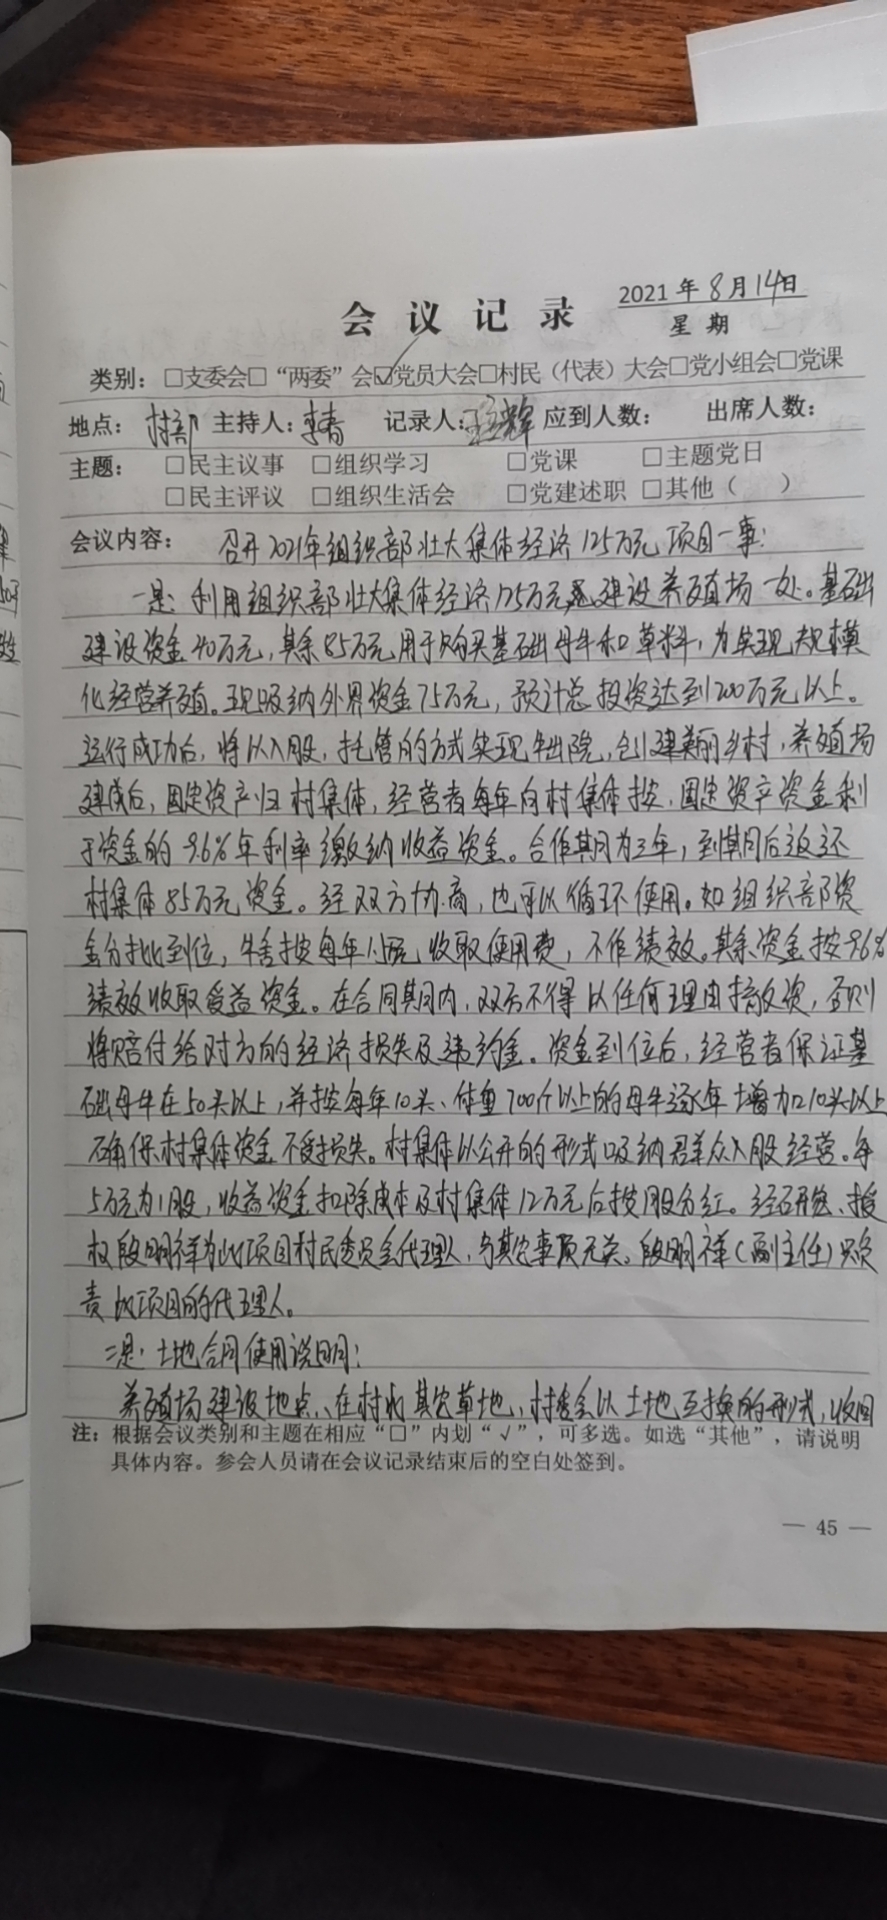 2021年8月14日
会议记录
星期
类别：□支委会□“两委”会☑党员大会□村民（代表）大会□党小组会□党课
地点：村部 主持人：李春 记录人： 辉 应到人数： 出席人数：
主题：□民主议事 □组织学习 □党课 □主题党日
□民主评议 □组织生活会 □党建述职 □其他（ ）
会议内容：召开2021年组织部壮大集体经济125万元项目一事：
一是：利用组织部壮大集体经济125万元建设养殖场一处。基础
建设资金40万元，其余85万元用于购买基础母牛和草料，为实现规模
化经营养殖。现吸纳外界资金75万元，预计总投资达到200万元以上。
运行成功后，将以入股，托管的方式实现牛出院，创建美丽乡村，养殖场
建成后，固定资产归村集体，经营者每年向村集体按，固定资产资金利
于资金的9.6%年利率缴纳收益资金。合作期为三年，到期后返还
村集体85万元资金。经双方协商，也可以循环使用。如组织部资
金分批到位，牛舍按每年1.5万元收取使用费，不作绩效。其余资金按9.6%
绩效收取受益资金。在合同期内，双方不得以任何理由撤资，否则
将赔付给对方的经济损失及违约金。资金到位后，经营者保证基
础母牛在50头以上，并按每年10头、体重700斤以上的母牛逐年增加10头以上
确保村集体资金不受损失。村集体以公开的形式吸纳群众入股经营。每
5万元为1股，收益资金扣除成本及村集体12万元后按股分红。经研究、授
权段明祥为此项目村民委员会代理人，与其它事项无关。段明祥（副主任）只负
责此项目的代理人。
二是：土地合同使用说明：
养殖场建设地点、在村 其它草地，村委会以土地互换的形式，收回
注：根据会议类别和主题在相应“□”内划“√”，可多选。如选“其他”，请说明
具体内容。参会人员请在会议记录结束后的空白处签到。
— 45 —